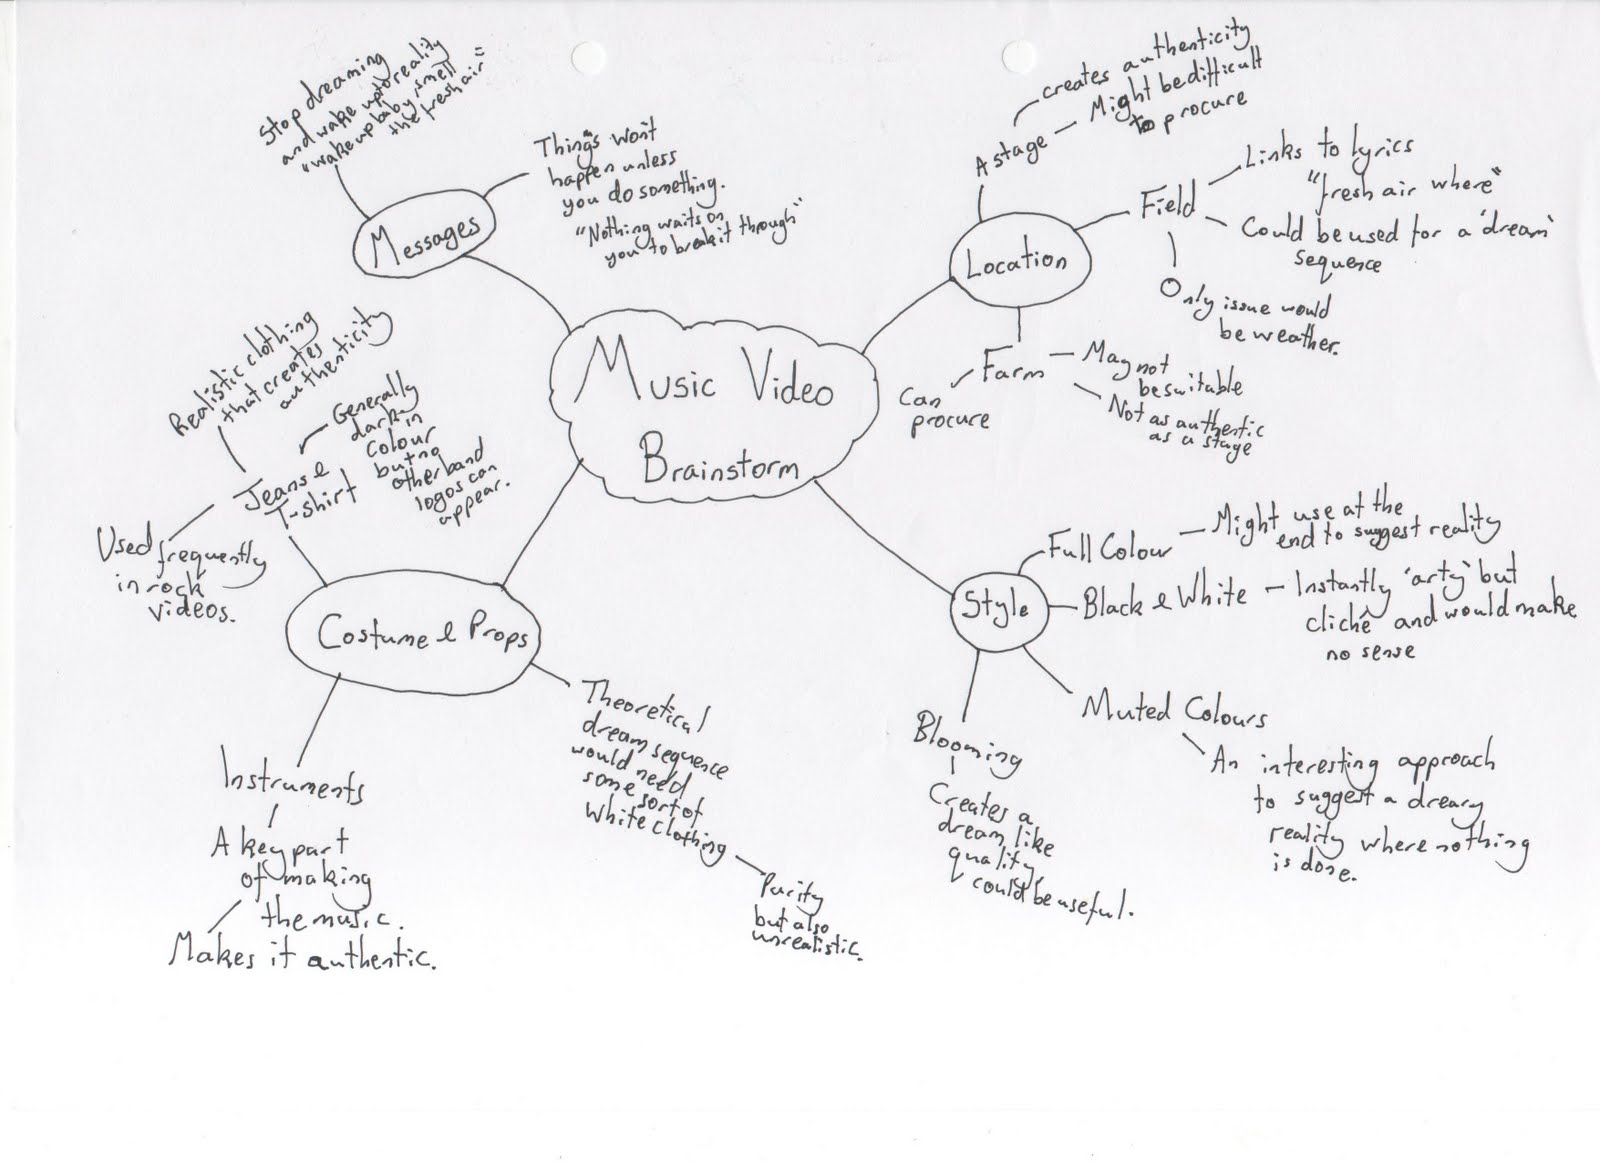 Music Video
Brainstorm
Messages
Stop dreaming
and wake up to reality
"wake up baby, smell
the fresh air"
Things won't
happen unless
you do something.
"Nothing waits on
you to break it through"
Location
A stage
creates authenticity
Might be difficult
to procure
Field
Links to lyrics
"fresh air where"
Could be used for a 'dream'
sequence
Only issue would
be weather.
Farm
Can
procure
May not
be suitable
Not as authentic
as a stage
Style
Full Colour
Might use at the
end to suggest reality
Black & White
Instantly 'arty' but
cliché and would make
no sense
Muted Colours
An interesting approach
to suggest a dreary
reality where nothing
is done.
Blooming
Creates a
dream like
quality,
could be useful.
Costume & Props
Jeans &
T-shirt
Realistic clothing
that creates
authenticity
Generally
dark in
colour
but no
other band
logos can
appear.
Used frequently
in rock
videos.
Instruments
A key part
of making
the music.
Makes it authentic.
Theoretical
dream sequence
would need
some sort of
white clothing
Purity
but also
unrealistic.